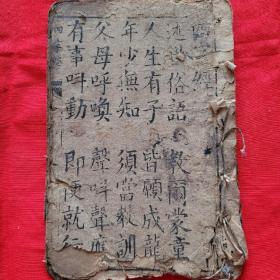 四字經
述成俗語 教爾蒙童
人生有子 皆願成龍
年少無知 須當教訓
父母呼喚 聲呌聲應
有事呌動 即便就行